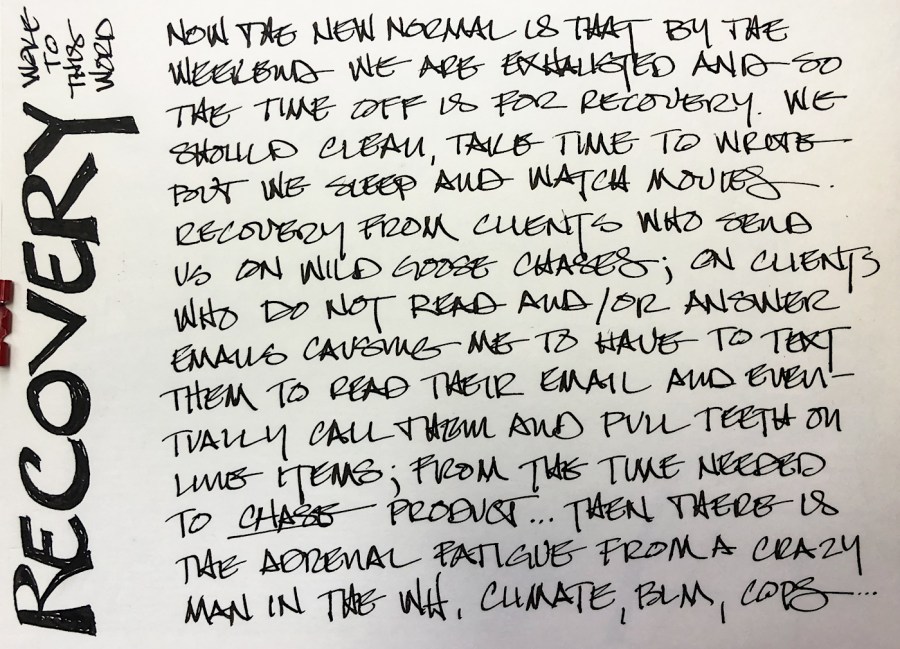 RECOVERY
WOKE
TO
THIS
WORD
NOW THE NEW NORMAL IS THAT BY THE
WEEKEND WE ARE EXHAUSTED AND SO
THE TIME OFF IS FOR RECOVERY. WE
SHOULD CLEAN, TAKE TIME TO WROTE
BUT WE SLEEP AND WATCH MOVIES.
RECOVERY FROM CLIENTS WHO SEND
US ON WILD GOOSE CHASES; ON CLIENTS
WHO DO NOT READ AND/OR ANSWER
EMAILS CAUSING ME TO HAVE TO TEXT
THEM TO READ THEIR EMAIL AND EVEN-
TUALLY CALL THEM AND PULL TEETH ON
LINE ITEMS; FROM THE TIME NEEDED
TO CHASE PRODUCT... THEN THERE IS
THE ADRENAL FATIGUE FROM A CRAZY
MAN IN THE WH, CLIMATE, BLM, COPS...